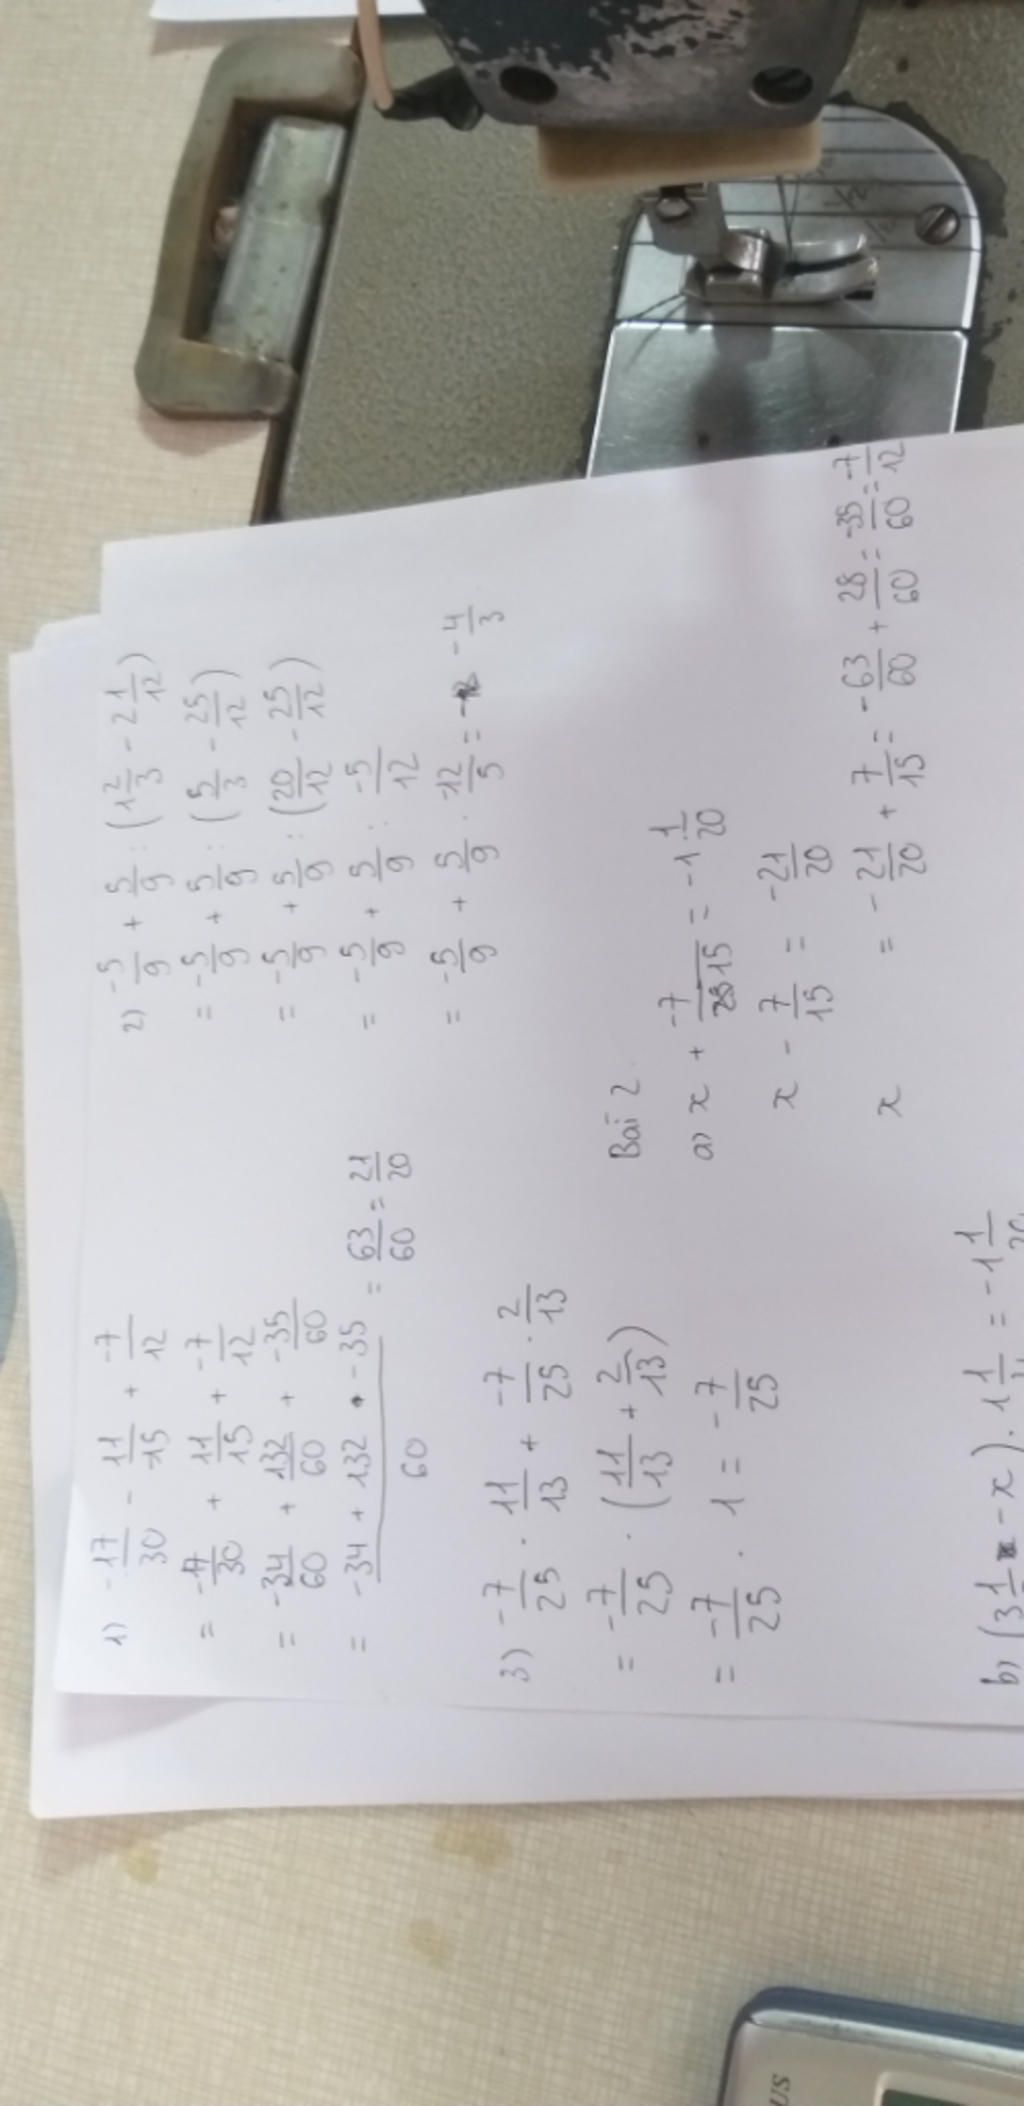 1) -17/30 - 11/-15 + -7/12
= -17/30 + 11/15 + -7/12
= -34/60 + 132/60 + -35/60
= -34 + 132 + -35 / 60 = 63/60 = 21/20
2) -5/9 + 5/9 : (1 2/3 - 2 1/12)
= -5/9 + 5/9 : (5/3 - 25/12)
= -5/9 + 5/9 : (20/12 - 25/12)
= -5/9 + 5/9 : -5/12
= -5/9 + 5/9 . -12/5 = - 4/3
3) -7/25 . 11/13 + -7/25 . 2/13
= -7/25 . (11/13 + 2/13)
= -7/25 . 1 = -7/25
Bài 2
a) x + -7/15 = -1 1/20
x - 7/15 = -21/20
x = -21/20 + 7/15 = -63/60 + 28/60 = -35/60 = -7/12
b) (3 1/ - x) . 1 1/ = -1 1/20
US